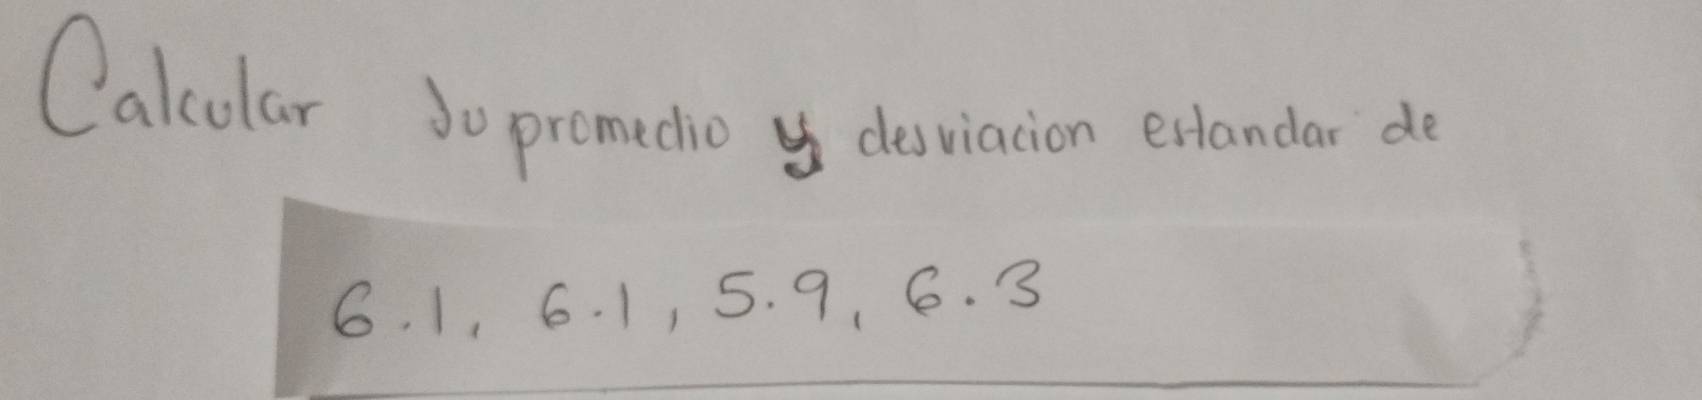 Calcular su promedio y desviacion estandar de
6.1, 6.1, 5.9, 6.3